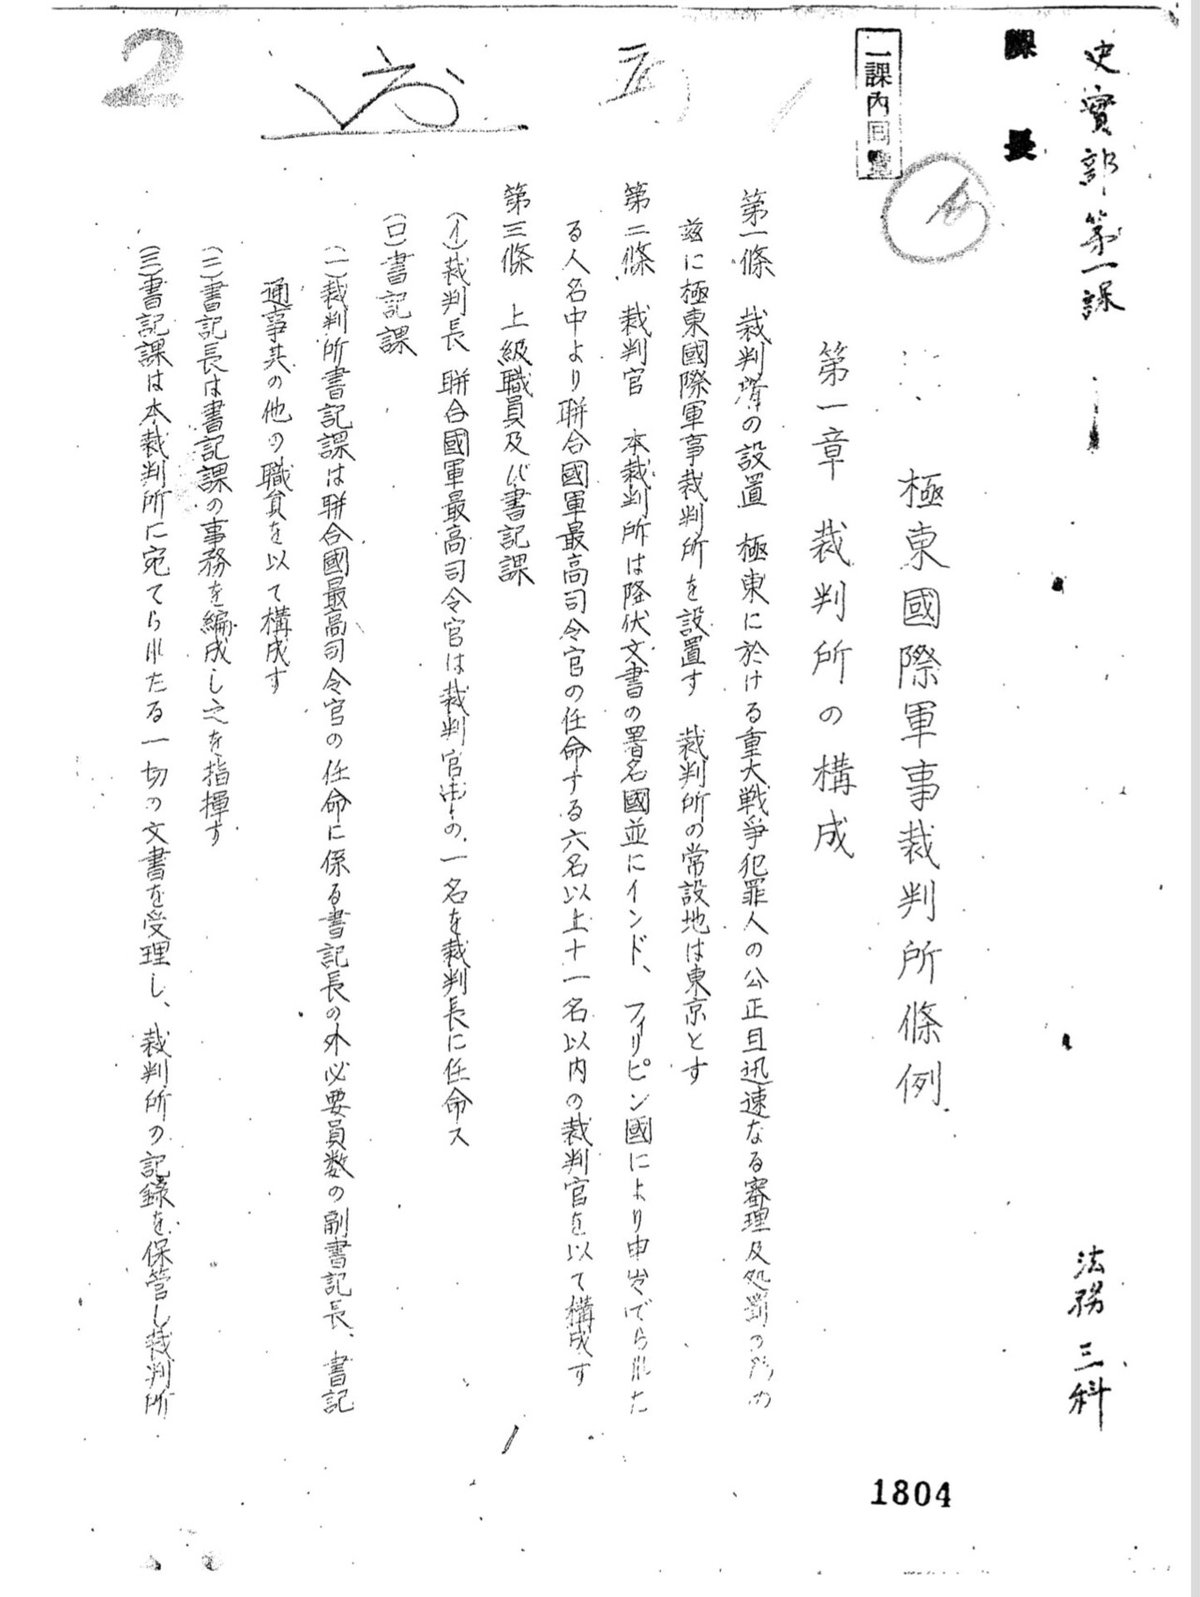 史實部第一課
法務三科
課長
一課内回覽
極東國際軍事裁判所條例
第一章 裁判所の構成
第一條 裁判所の設置 極東に於ける重大戦争犯罪人の公正且迅速なる審理及処罰の為め
茲に極東國際軍事裁判所を設置す 裁判所の常設地は東京とす
第二條 裁判官 本裁判所は降伏文書の署名國並にインド、フィリピン國により申出でられた
る人名中より聯合國軍最高司令官の任命する六名以上十一名以内の裁判官を以て構成す
第三條 上級職員及ビ書記課
(イ)裁判長 聯合國軍最高司令官は裁判官中の一名を裁判長に任命ス
(ロ)書記課
(一)裁判所書記課は聯合國最高司令官の任命に係る書記長の外必要員数の副書記長、書記
通事其の他の職員を以て構成す
(二)書記長は書記課の事務を編成し之を指揮す
(三)書記課は本裁判所に宛てられたる一切の文書を受理し、裁判所の記録を保管し裁判所
2
1804